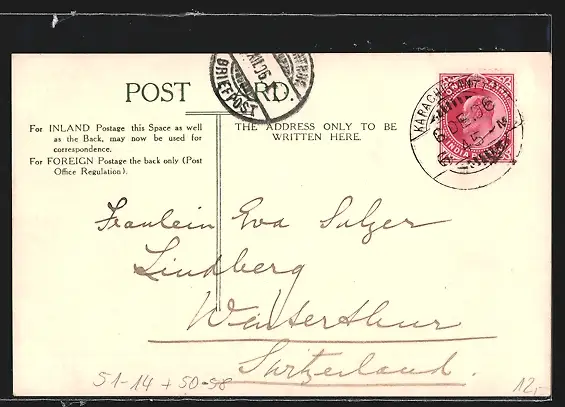 POST CARD.
BRIEFPOST
KARACHI
6 DE 06
INDIA
For INLAND Postage this Space as well
as the Back, may now be used for
correspondence.
For FOREIGN Postage the back only (Post
Office Regulation).
THE ADDRESS ONLY TO BE
WRITTEN HERE.
Fraulein Eva Sulzer
Lindberg
Winterthur
Switzerland.
51-14 + 50-98
12,-